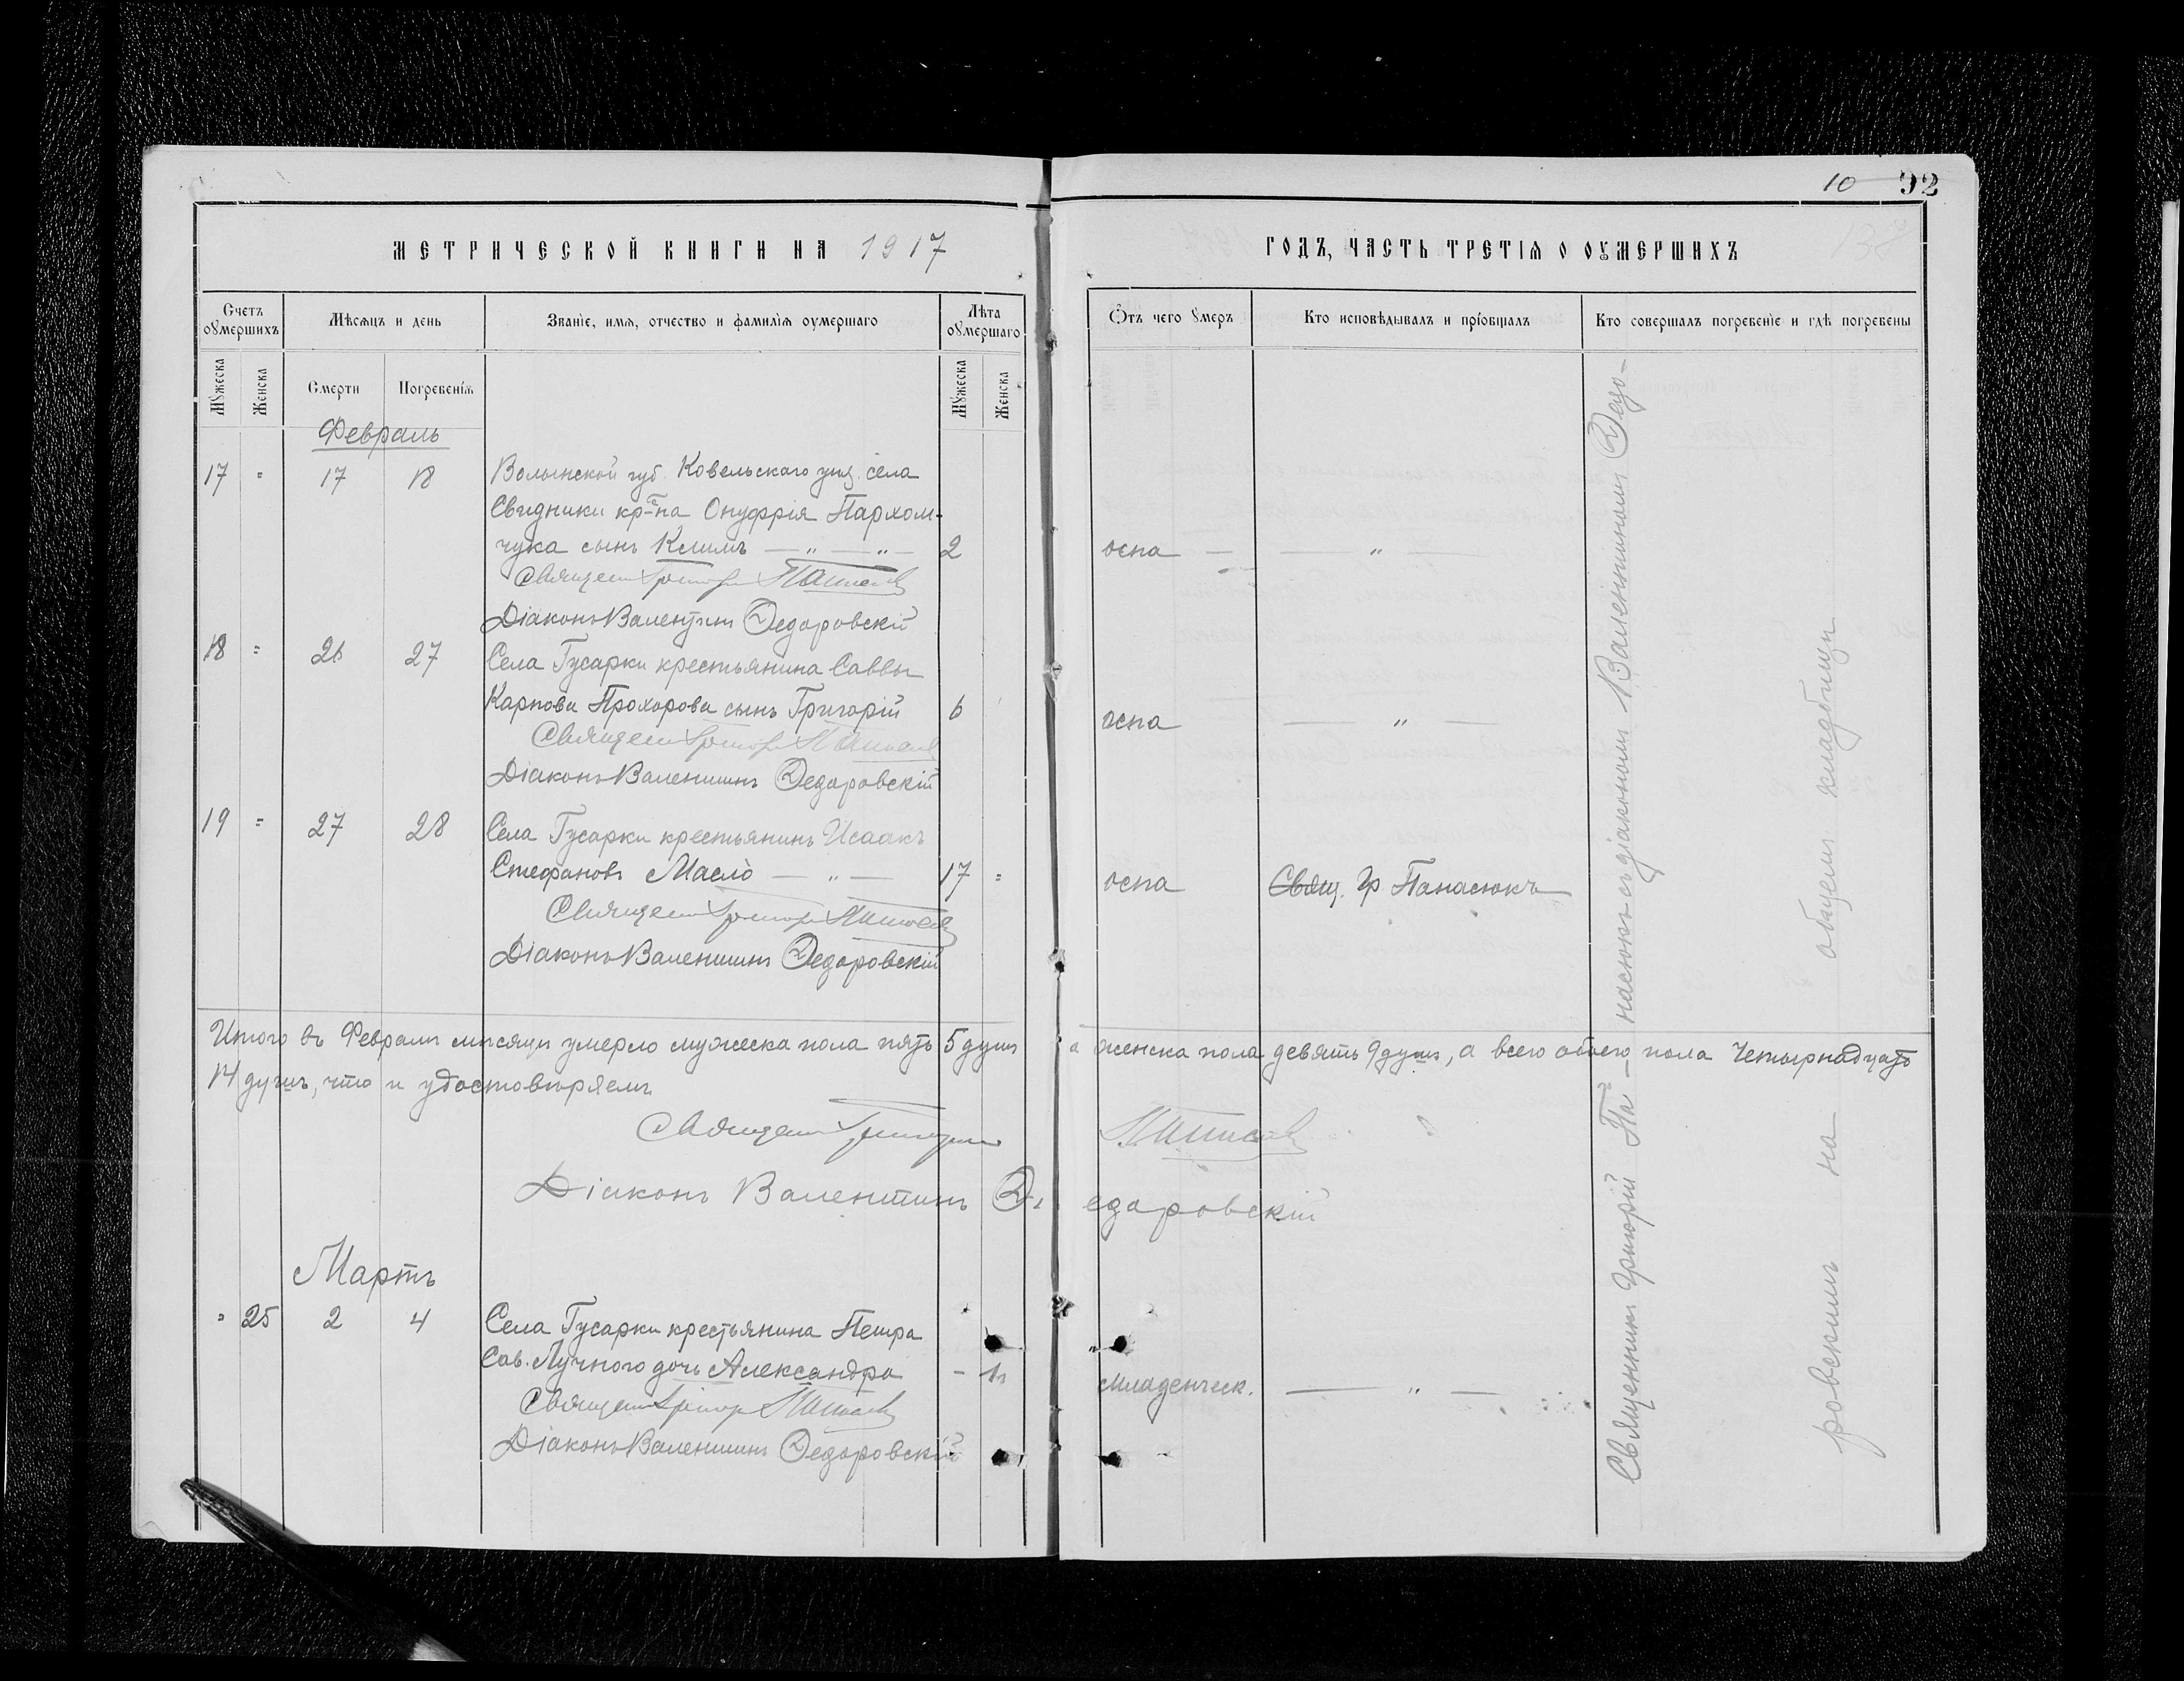 10 92
МЕТРИЧЕСКОЙ КНИГИ НА 1917
ГОДЪ, ЧАСТЬ ТРЕТІѦ О ОУМЕРШИХЪ
138
Счетъ оумершихъ
Мѣсяцъ и день
Званіе, имя, отчество и фамилія оумершаго
Лѣта оумершаго
Отъ чего умеръ
Кто исповѣдывалъ и пріобщалъ
Кто совершалъ погребеніе и гдѣ погребены
Мужеска
Женска
Смерти
Погребенія
Мужеска
Женска
Февраль
17 = 17 18 Волынской губ. Ковельскаго уѣз. села
Свидники кр-на Онуфрія Пархом-
чука сынъ Климъ — „ — „ — 2 оспа — — „ —
Священ Григор Панасюк
Діаконъ Валентинъ Федоровскій
18 = 26 27 Села Гусарки крестьянина Саввы
Карпова Прохорова сынъ Григорій 6 оспа — „ —
Священ Григор Панасюк
Діаконъ Валентинъ Федоровскій
19 = 27 28 Села Гусарки крестьянинъ Исаакъ
Стефановъ Масло — „ — 17 = оспа Свящ. Гр Панасюкъ
Священ Григор Панасюк
Діаконъ Валентинъ Федоровскій
Итого въ Февралѣ мѣсяцѣ умерло мужеска пола пять 5 душъ а женска пола девять 9 душъ, а всего обоего пола четырнадцать
14 душъ, что и удостовѣряемъ
Священ Григорій Панасюк
Діаконъ Валентинъ Федоровскій
Мартъ
= 25 2 4 Села Гусарки крестьянина Петра
Сав. Лучного дочь Александра - младенческ. — „ —
Священ Григор Панасюк
Діаконъ Валентинъ Федоровскій
Священникъ Григорій Па-насюкъ съ діакономъ Валентиномъ Федо-
ровскимъ на общемъ кладбищѣ